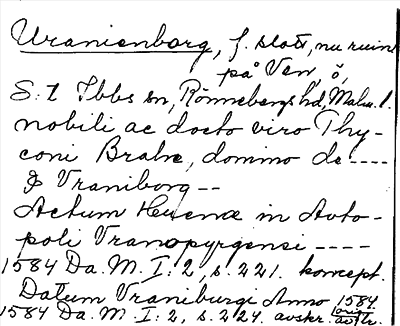 Uranienborg, f. slott, nu ruin
på Ven, ö,
S:t Ibbs sn, Rönnebergs hd, Malm. l.
nobili ac docto viro Thy-
coni Brahe, domino de ----
& Vraniborg --
Actum Huenæ in Avto-
poli Vranopyrgensi ----
1584 Da. M. I: 2, s. 221. koncept.
Datum Vraniburgi Anno 1584
1584 Da. M. I: 2, s. 224. avskr.